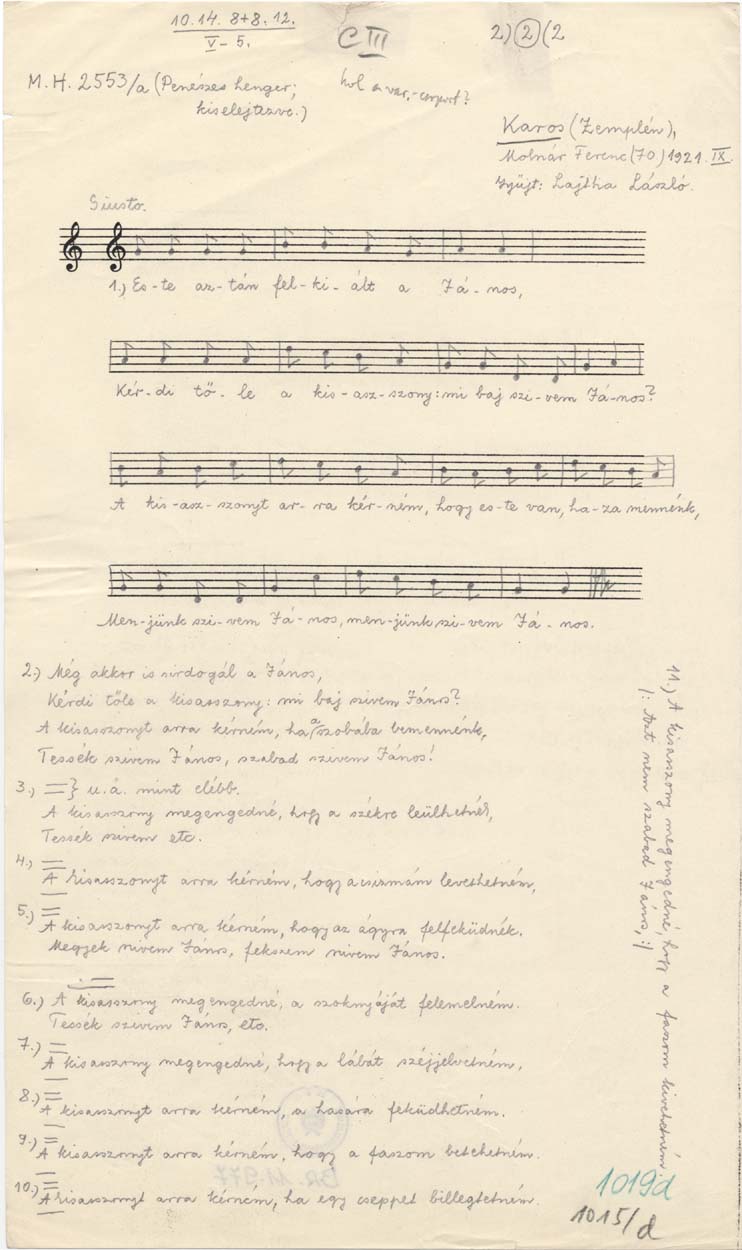 10. 14. 8+8. 12.
V - 5.
C III
2) 2 (2
M. H. 2553/a (Penészes henger;
kiselejtezve.)
hol a var.-csoport?
Karos (Zemplén),
Molnár Ferenc (70) 1921. IX.
Gyűjt: Lajtha László.
Giusto.
1.) Es-te az-tán fel-ki-ált a Já-nos,
Kér-di tő-le a kis-asz-szony: mi baj szi-vem Já-nos?
A kis-asz-szonyt ar-ra kér-ném, hogy es-te van, ha-za mennénk,
Men-jünk szi-vem Já-nos, men-jünk szi-vem Já-nos.
2.) Még akkor is sirdogál a János,
Kérdi tőle a kisasszony: mi baj szivem János?
A kisasszonyt arra kérném, ha a szobába bemennénk,
Tessék szivem János, szabad szivem János!
3.) =} u. a. mint elébb.
A kisasszony megengedné, hogy a székre leülhetnék,
Tessék szivem etc.
4.) =
A kisasszonyt arra kérném, hogy a csizmám levethetném,
5.) =
A kisasszonyt arra kérném, hogy az ágyra felfeküdnék.
Megyek szivem János, fekszem szivem János.
6.) A kisasszony megengedné, a szoknyáját felemelném.
Tessék szivem János, etc.
7.) =
A kisasszony megengedné, hogy a lábát széjjelvetném,
8.) =
A kisasszonyt arra kérném, a hasára feküdhetném.
9.) =
A kisasszonyt arra kérném, hogy a faszom betehetném.
10.) =
A kisasszonyt arra kérném, ha egy cseppet billegtetném.
11.) A kisasszony megengedné, hogy a faszom kivehetném.
/: Azt nem szabad János, :/
1019d
1015/d